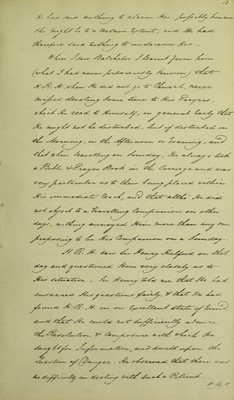 13
He had said nothing to alarm Her, possibly however
She might be to a certain Extent, and He had
therefore said nothing to undeceive Her.
When I saw Batchelor I learnt from him
(what I had never previously known) that
H.R.H. when He did not go to Church, never
missed devoting some time to His Prayers,
which He read to Himself, in general early that
He might not be disturbed, but if disturbed in
the Morning, in the Afternoon or Evening, and
that when travelling on Sunday, He always took
a Bible & Prayer Book in the Carriage and was
very particular as to their being placed within
His immediate reach, and that altho' He did
not object to a Travelling Companion on other
days, nothing annoyed Him more than any one
proposing to be His Companion on a Sunday.
H.R.H. saw Sir Henry Halford on that
day and questioned Him very closely as to
His situation — Sir Henry told me that He had
answered His questions fairly & that He had
found H.R.H. in an Excellent state of mind
and that He could not sufficiently admire
the Resolution & Composure with which He
sought for Information and dwelt upon the
Question of Danger. He observed that there was
no difficulty in dealing with such a Patient.
H.R.H